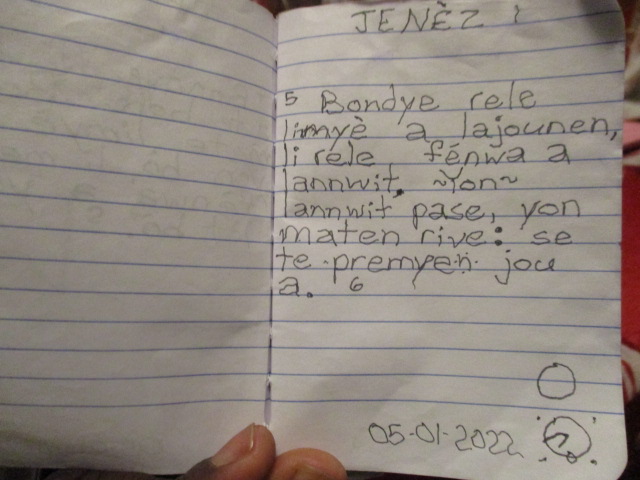 JENÈZ 1
5 Bondye rele
limyè a lajounen,
li rele fénwa a
lannwit. ~Yon~
lannwit pase, yon
maten rive: se
te premyen jou
a. 6
05-01-2022